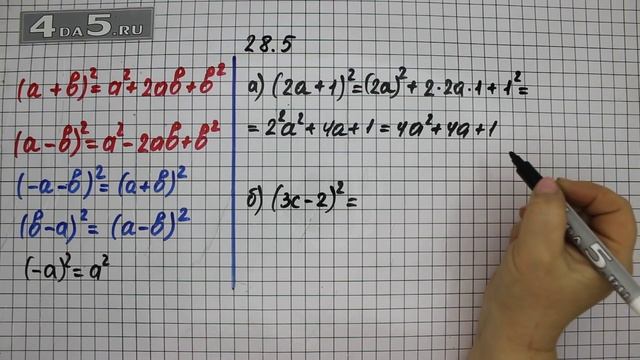 4DA5.RU
(a + b)² = a² + 2ab + b²
(a - b)² = a² - 2ab + b²
(-a - b)² = (a + b)²
(b - a)² = (a - b)²
(-a)² = a²
28.5
а) (2a + 1)² = (2a)² + 2·2a·1 + 1² =
= 2²a² + 4a + 1 = 4a² + 4a + 1
б) (3c - 2)² =